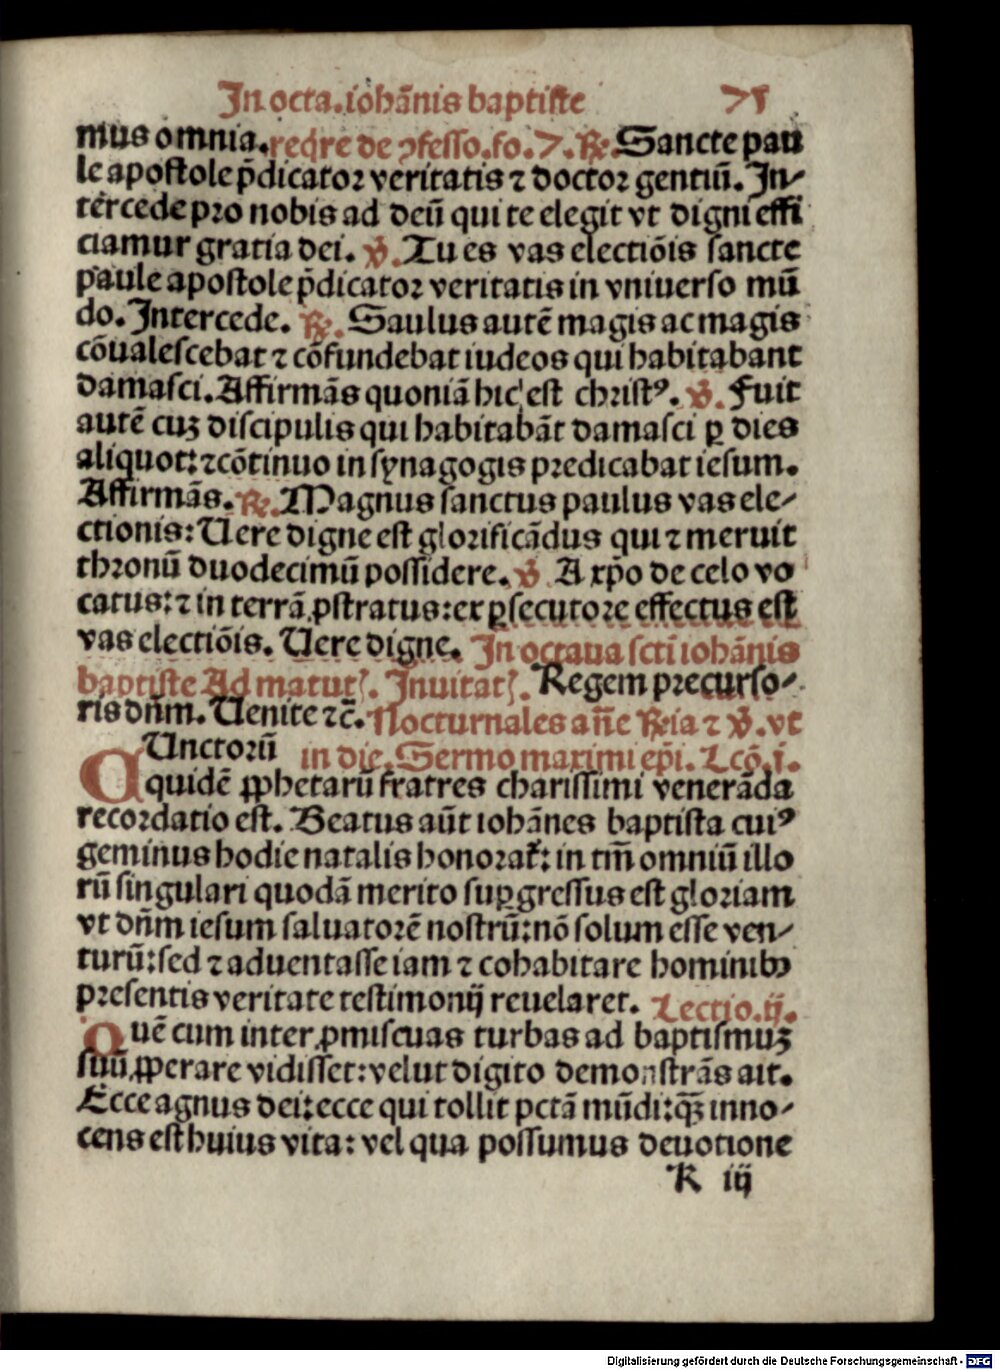 In octa.iohānis baptiste 71
mus omnia.reqͥre de ꝯfesso.fo.7.℟.Sancte pau
le apostole p̄dicator veritatis ⁊ doctor gentiū. In-
tercede pro nobis ad deū qui te elegit vt digni effi
ciamur gratia dei. ℣.Tu es vas electiōis sancte
paule apostole p̄dicator veritatis in vniuerso mū
do. Intercede. ℟. Saulus autē magis ac magis
cōualescebat ⁊ cōfundebat iudeos qui habitabant
damasci. Affirmās quoniā hic est christꝰ. ℣. Fuit
autē cuz discipulis qui habitabāt damasci ꝑ dies
aliquot: ⁊ cōtinuo in synagogis predicabat iesum.
Affirmās. ℟. Magnus sanctus paulus vas ele-
ctionis: Uere digne est glorificādus qui ⁊ meruit
thronū duodecimū possidere. ℣. A xp̄o de celo vo
catus: ⁊ in terrā ꝓstratus: ex ꝑsecutore effectus est
vas electiōis. Uere digne. In octaua scti iohānis
baptiste Ad matutꝭ. Inuitatꝭ. Regem precurso-
ris dn̄m. Uenite ⁊c̄. Nocturnales an̄e ℟ia ⁊ ℣. vt
CUnctorū in die. Sermo maximi ep̄i. Lcō.j.
quidē ꝓphetarū fratres charissimi venerāda
recordatio est. Beatus aūt iohānes baptista cuiꝰ
geminus hodie natalis honorat᷑: in tm̄ omniū illo
rū singulari quodā merito suꝑgressus est gloriam
vt dn̄m iesum saluatorē nostrū: nō solum esse ven-
turū: sed ⁊ aduentasse iam ⁊ cohabitare hominibꝰ
presentis veritate testimonij reuelaret. Lectio.ij.
Quē cum inter ꝓmiscuas turbas ad baptismuz
suū ꝓperare vidisset: velut digito demonstrās ait.
Ecce agnus dei: ecce qui tollit pctā mūdi: qꝫ inno-
cens est huius vita: vel qua possumus deuotione
K iij
Digitalisierung gefördert durch die Deutsche Forschungsgemeinschaft - DFG